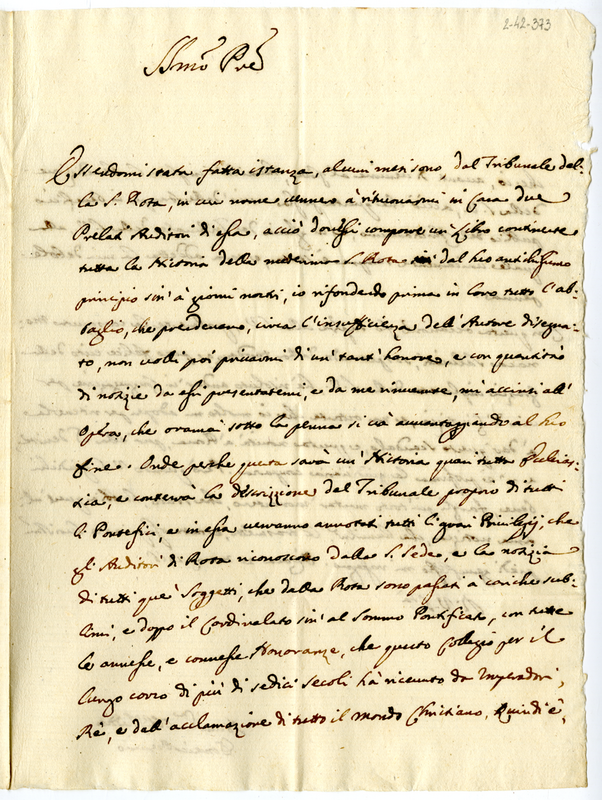 2-42-373
Ssmo Pre
Essendomi stata fatta istanza, alcuni mesi sono, dal Tribunale del-
la S. Rota, in cui nome vennero à ritrovarmi in Casa due
Prelati Auditori di essa, acciò dovessi comporre un Libro continente
tutta la Historia della medesima S. Rota sin' dal suo antichissimo
principio sin' à giorni nostri, io rifondendo prima in loro tutto l'ab-
baglio, che prendevano, circa l'insufficienza dell'Autore disegna-
to, non volli poi privarmi di un' tant' honore, e con quantità
di notizie da essi presentatemi, e da me rinvenute, mi accinsi all'
Opera, che oramai sotto la penna si và avvantaggiando al suo
fine. Onde perche questa sarà un' Historia quasi tutta Ecclesias-
tica, e conterrà la descrizzione del Tribunale proprio di tutti
li Pontefici, e in essa verranno annotati tutti li gran Privilegij, che
gli Auditori di Rota riconoscono dalla S. Sede, e la notizia
di tutti que' Soggetti, che dalla Rota sono passati à cariche sub-
limi, e doppo il Cardinalato sin' al Sommo Pontificato, con tutte
le annesse, e connesse Honoranze, che questo Collegio per il
lungo corso di più di sedici secoli hà ricevuto da Imperadori,
Rè, e dall'acclamazione di tutto il mondo Christiano, Quindi è,